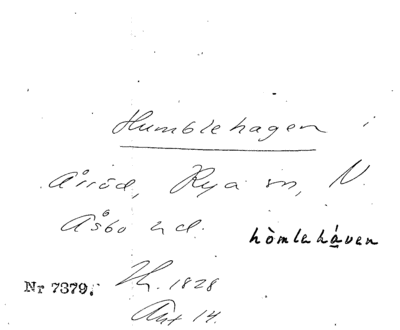 Humblehagen i
Årröd, Rya sn, N.
Åsbo hd.
hòmlehάven
Nr 7379. Th. 1828
Akt 14.